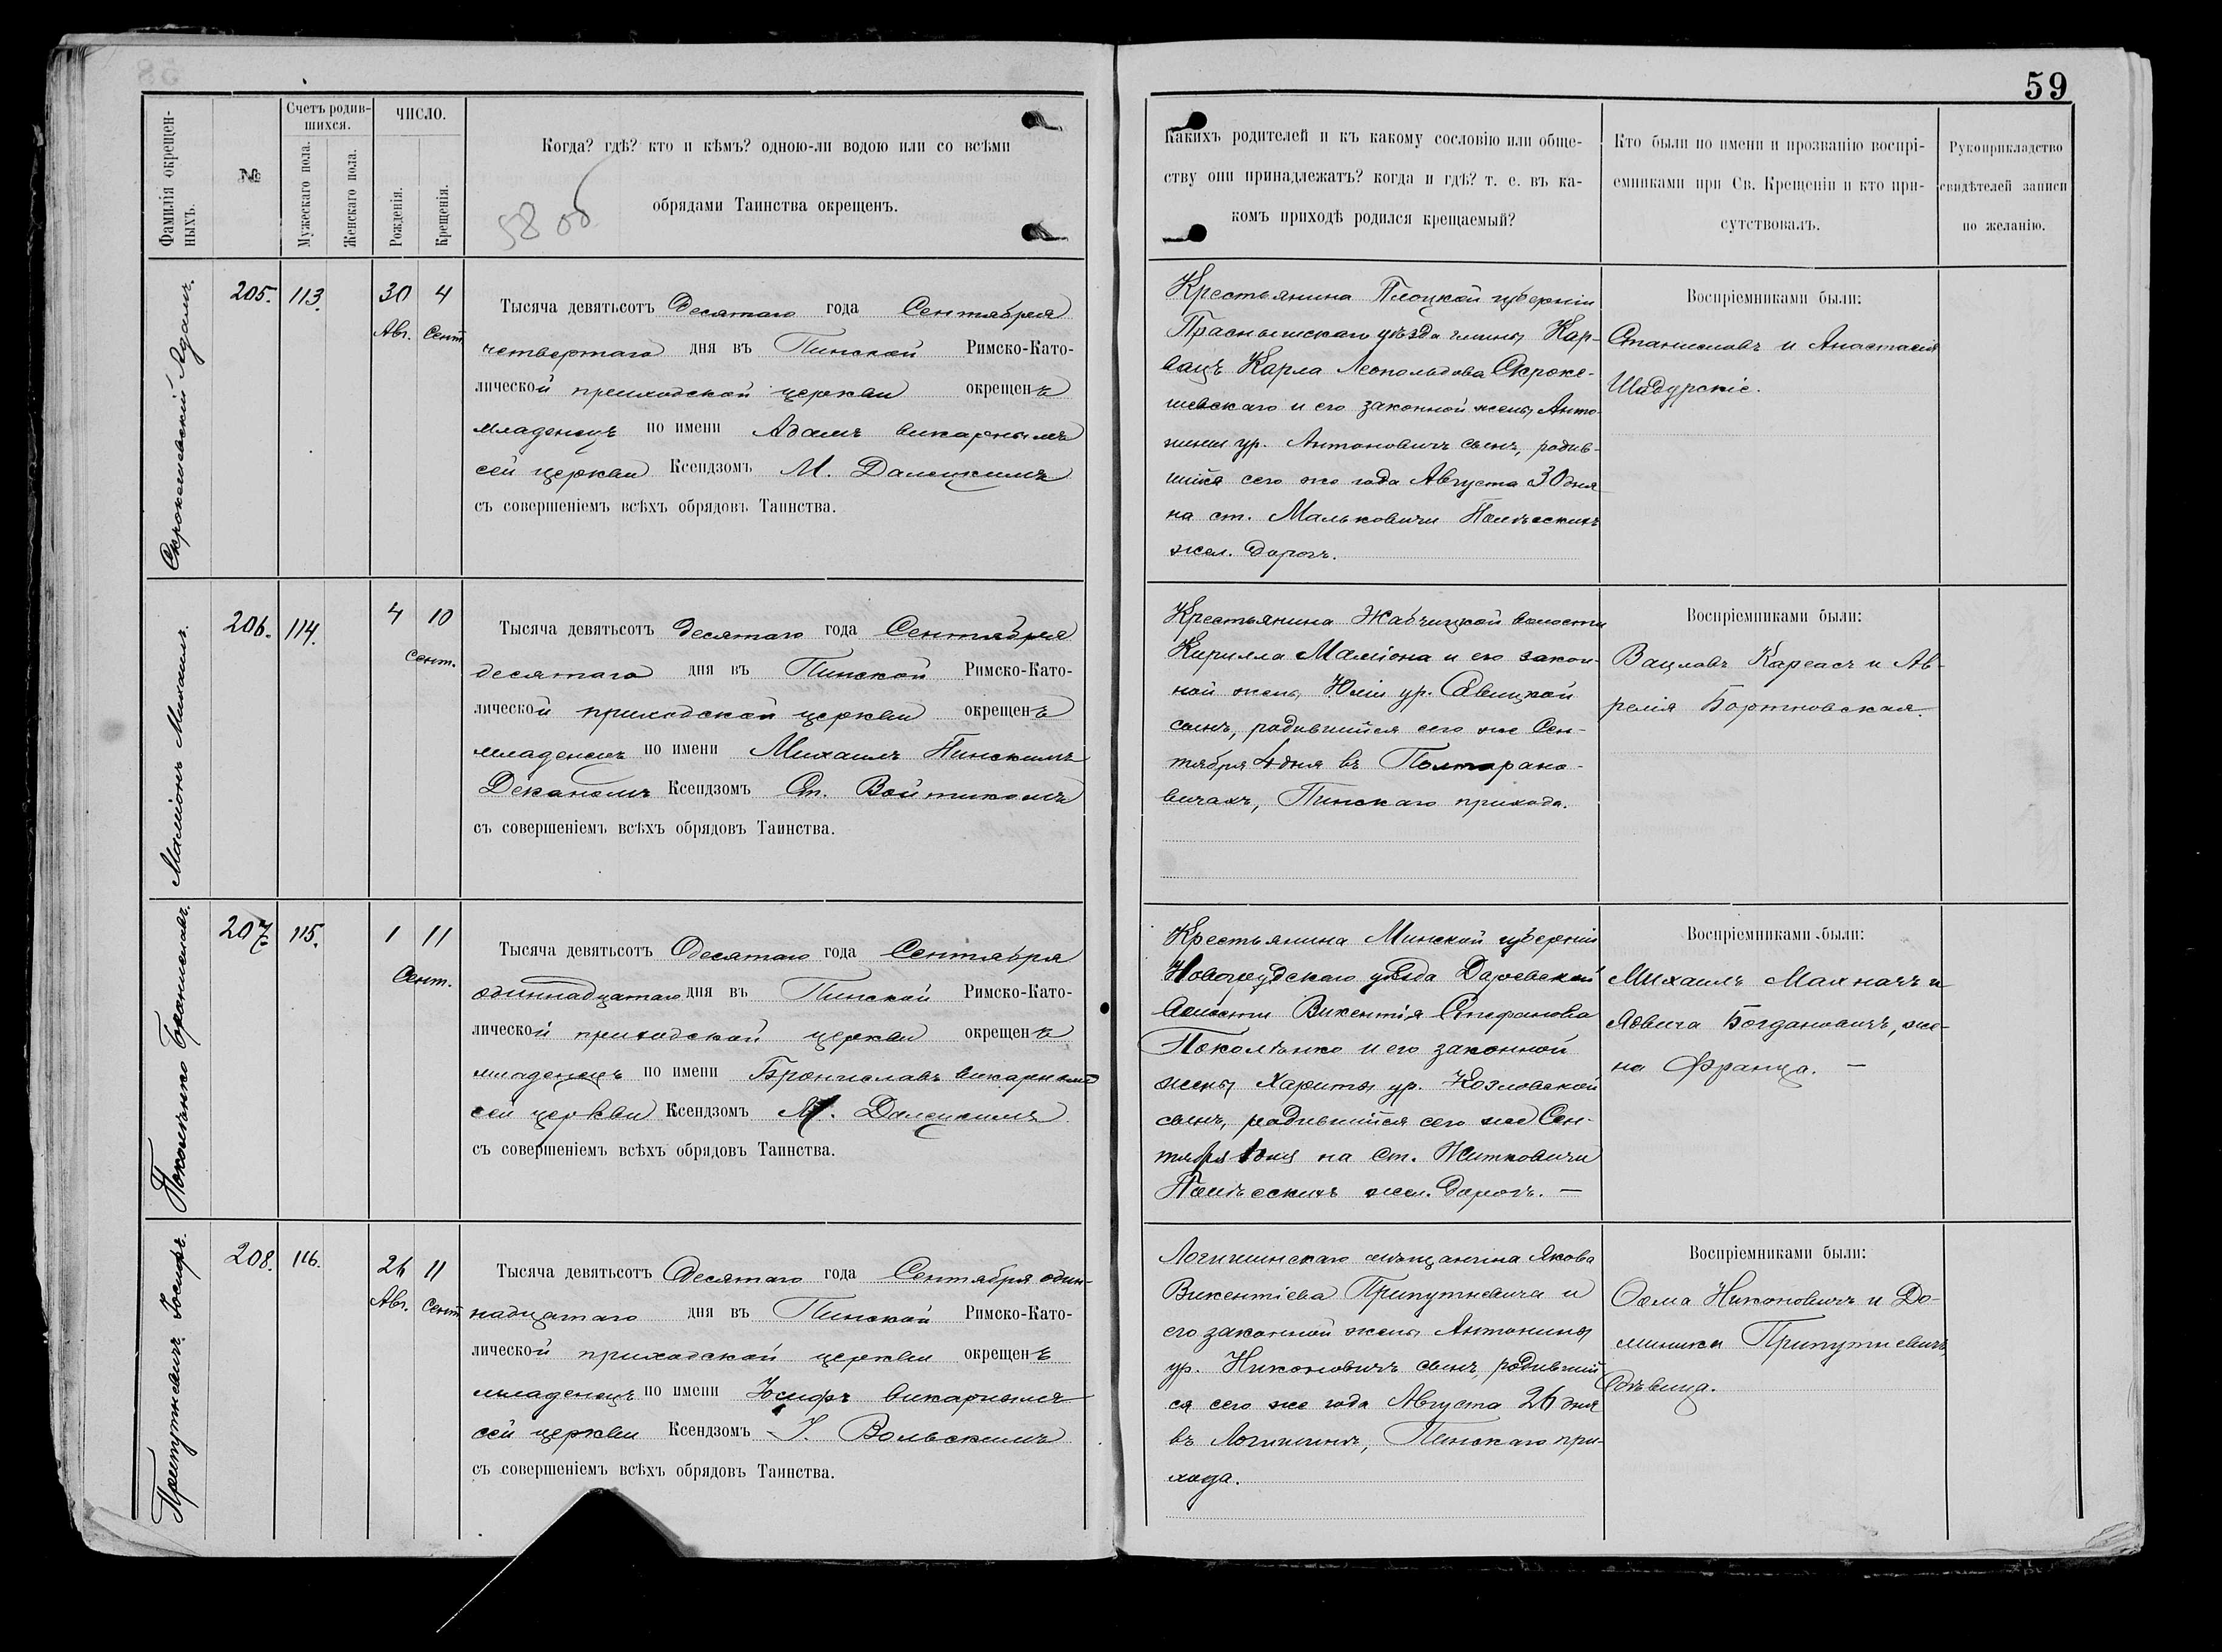 59
Фамилія окрещен-
ныхъ.
№
Счетъ родив-
шихся.
Мужескаго пола.
Женскаго пола.
ЧИСЛО.
Рожденія.
Крещенія.
Когда? гдѣ? кто и кѣмъ? одною-ли водою или со всѣми
обрядами Таинства окрещенъ.
Какихъ родителей и къ какому сословію или обще-
ству они принадлежатъ? когда и гдѣ? т. е. въ ка-
комъ приходѣ родился крещаемый?
Кто были по имени и прозванію воспрі-
емниками при Св. Крещеніи и кто при-
сутствовалъ.
Рукоприкладство
свидѣтелей записи
по желанію.
Адамъ.
205.
113.
30 4
Авг. Сент.
Тысяча девятьсотъ Десятаго года Сентября
четвертаго дня въ Пинской Римско-Като-
лической приходской церкви окрещенъ
младенецъ по имени Адамъ викарнымъ
сей церкви Ксендзомъ М. Далецкимъ
съ совершеніемъ всѣхъ обрядовъ Таинства.
Крестьянина Плоцкой губерніи
Праснышскаго уѣзда гмины Кар-
вачъ Карла Леопольдова Скроке-
шевскаго и его законной жены Анто-
нины ур. Антоновичъ сынъ, родив-
шійся сего же года Августа 30 дня
на ст. Мальковичи Полѣсскихъ
жел. дорогъ.
Воспріемниками были:
Станиславъ и Анастасія
Шадурскіе.
Маліонъ Михаилъ.
206.
114.
4 10
Сент.
Тысяча девятьсотъ десятаго года Сентября
десятаго дня въ Пинской Римско-Като-
лической приходской церкви окрещенъ
младенецъ по имени Михаилъ Пинскимъ
Деканомъ Ксендзомъ Ст. Войтикомъ
съ совершеніемъ всѣхъ обрядовъ Таинства.
Крестьянина Жабчицкой волости
Кирилла Маліона и его закон-
ной жены Юліи ур. Савицкой
сынъ, родившійся сего же Сен-
тября 4 дня въ Полторано-
вичахъ, Пинскаго прихода.
Воспріемниками были:
Вацлавъ Кареасъ и Ав-
релія Бортновская.
Поколѣнко Брониславъ.
207.
115.
1 11
Сент.
Тысяча девятьсотъ Десятаго года Сентября
одиннадцатаго дня въ Пинской Римско-Като-
лической приходской церкви окрещенъ
младенецъ по имени Брониславъ викарнымъ
сей церкви Ксендзомъ М. Далецкимъ
съ совершеніемъ всѣхъ обрядовъ Таинства.
Крестьянина Минской губерніи
Новогрудскаго уѣзда Даревской
волости Викентія Стефанова
Поколѣнко и его законной
жены Хариты ур. Козловской
сынъ, родившійся сего же Сен-
тября 1 дня на ст. Житковичи
Полѣсскихъ жел. дорогъ. —
Воспріемниками были:
Михаилъ Махначъ и
Ядвига Богдановичъ, же-
на Франца. —
Припутневичъ Іосифъ.
208.
116.
26 11
Авг. Сент
Тысяча девятьсотъ Десятаго года Сентября один-
надцатаго дня въ Пинской Римско-Като-
лической приходской церкви окрещенъ
младенецъ по имени Іосифъ викарнымъ
сей церкви Ксендзомъ І. Вольскимъ
съ совершеніемъ всѣхъ обрядовъ Таинства.
Логишинскаго мѣщанина Якова
Викентіева Припутневича и
его законной жены Антонины
ур. Никоновичъ сынъ, родившій
ся сего же года Августа 26 дня
въ Логишинѣ, Пинскаго при-
хода.
Воспріемниками были:
Ѳома Никоновичъ и До-
миника Припутневичъ,
дѣвица.